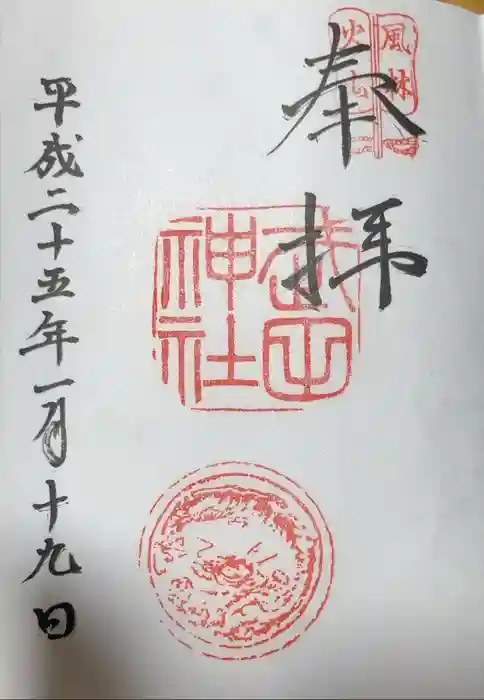 奉拝
風林
火山
武田
神社
平成二十五年一月十九日